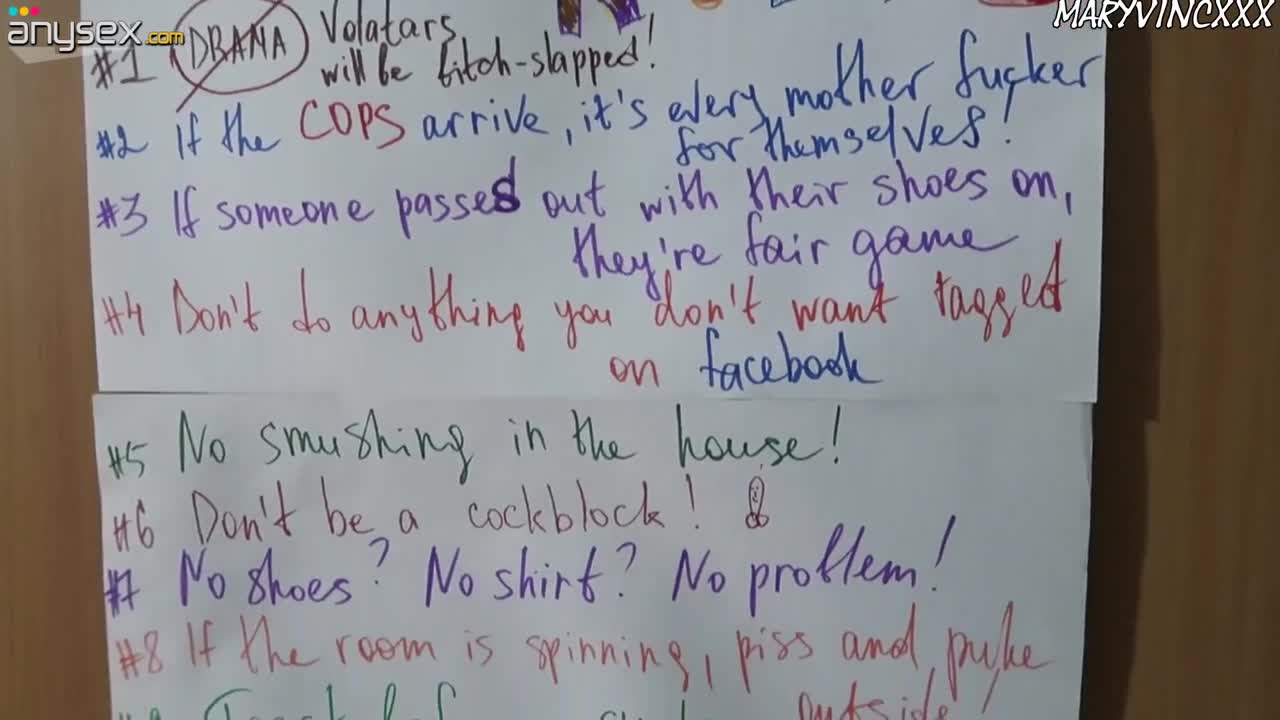 anysex.com
MARYVINCXXX
#1 DRAMA Volatars
will be bitch-slapped!
#2 If the COPS arrive, it's every mother fucker
for themselves!
#3 If someone passes out with their shoes on,
they're fair game
#4 Don't do anything you don't want tagged
on facebook
#5 No smushing in the house!
#6 Don't be a cockblock!
#7 No shoes? No shirt? No problem!
#8 If the room is spinning, piss and puke
outside!